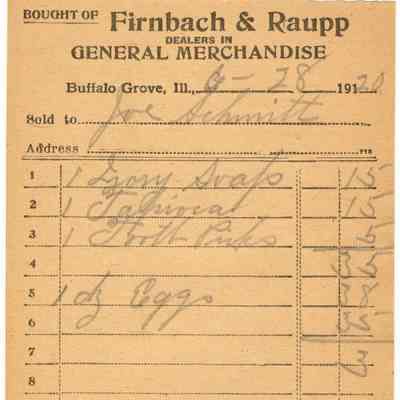 BOUGHT OF Firnbach & Raupp
DEALERS IN
GENERAL MERCHANDISE
Buffalo Grove, Ill., 6-28 1920
Sold to Joe Schmitt
Address
1 1 Ivory Soap 15
2 1 Tapioca 15
3 1 Tooth Picks 5
4 35
5 1 dz Eggs 38
6 35
7 3
8